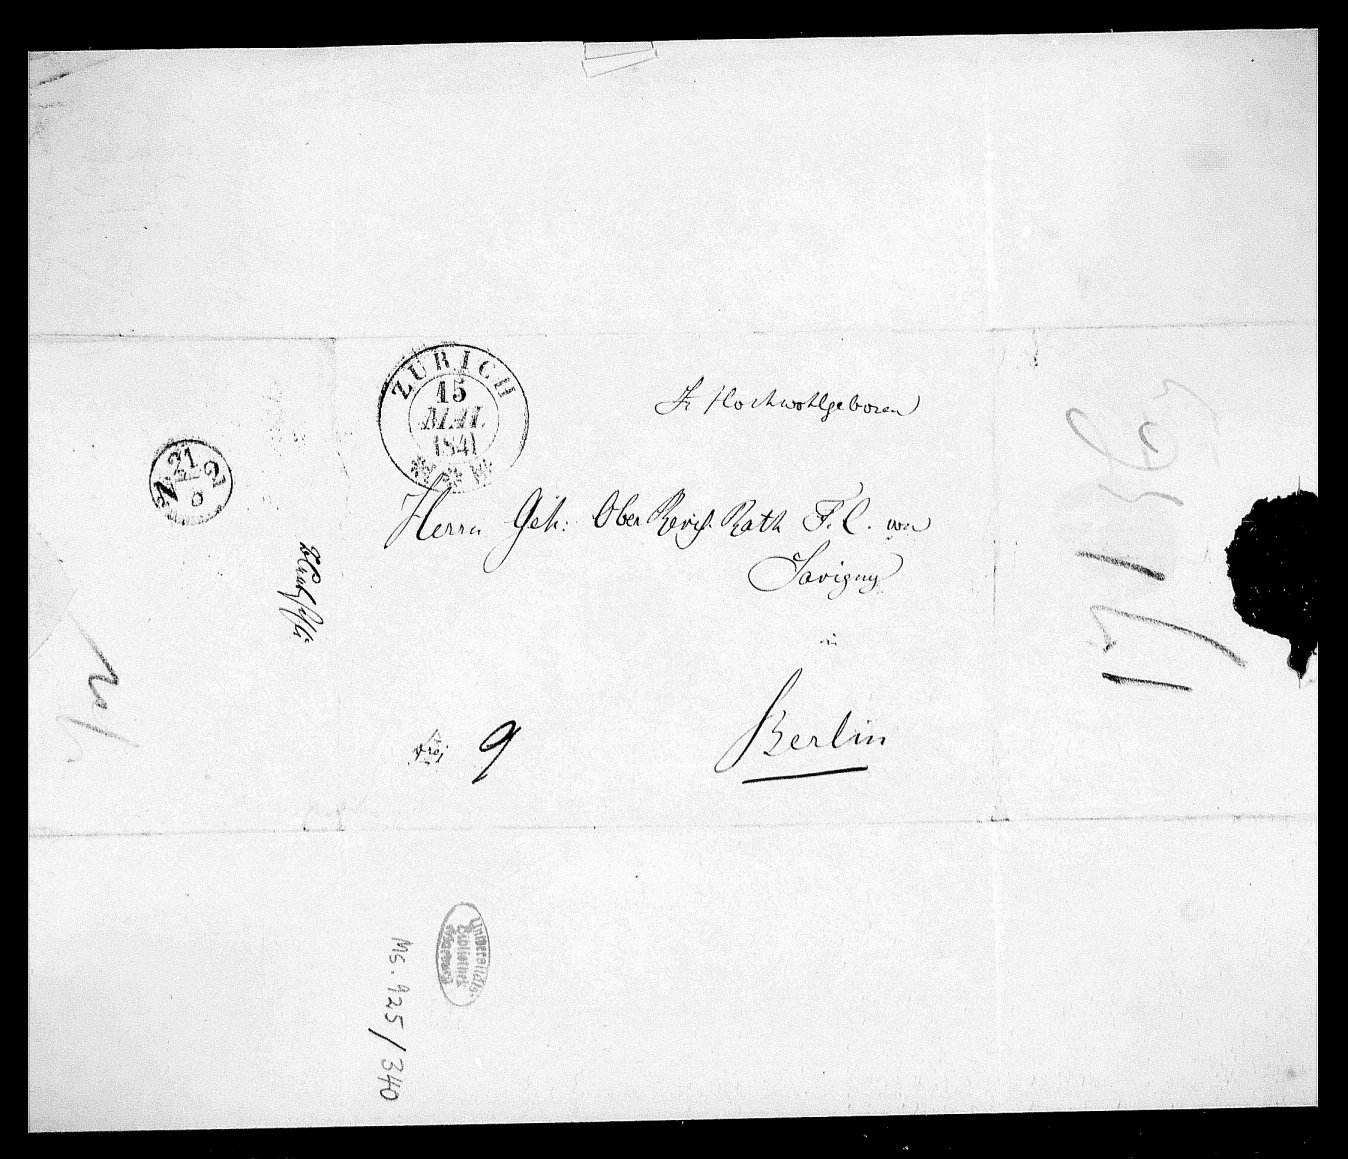 ZÜRICH
15
MAI
1841
Sr Hochwohlgeboren
Herrn Geh: Ober Revis. Rath F. C. von
Savigny
in
Berlin
frei 9
N 21 2
5
Bluntschli
Universitäts-
Bibliothek
Marburg
Ms. 925/340